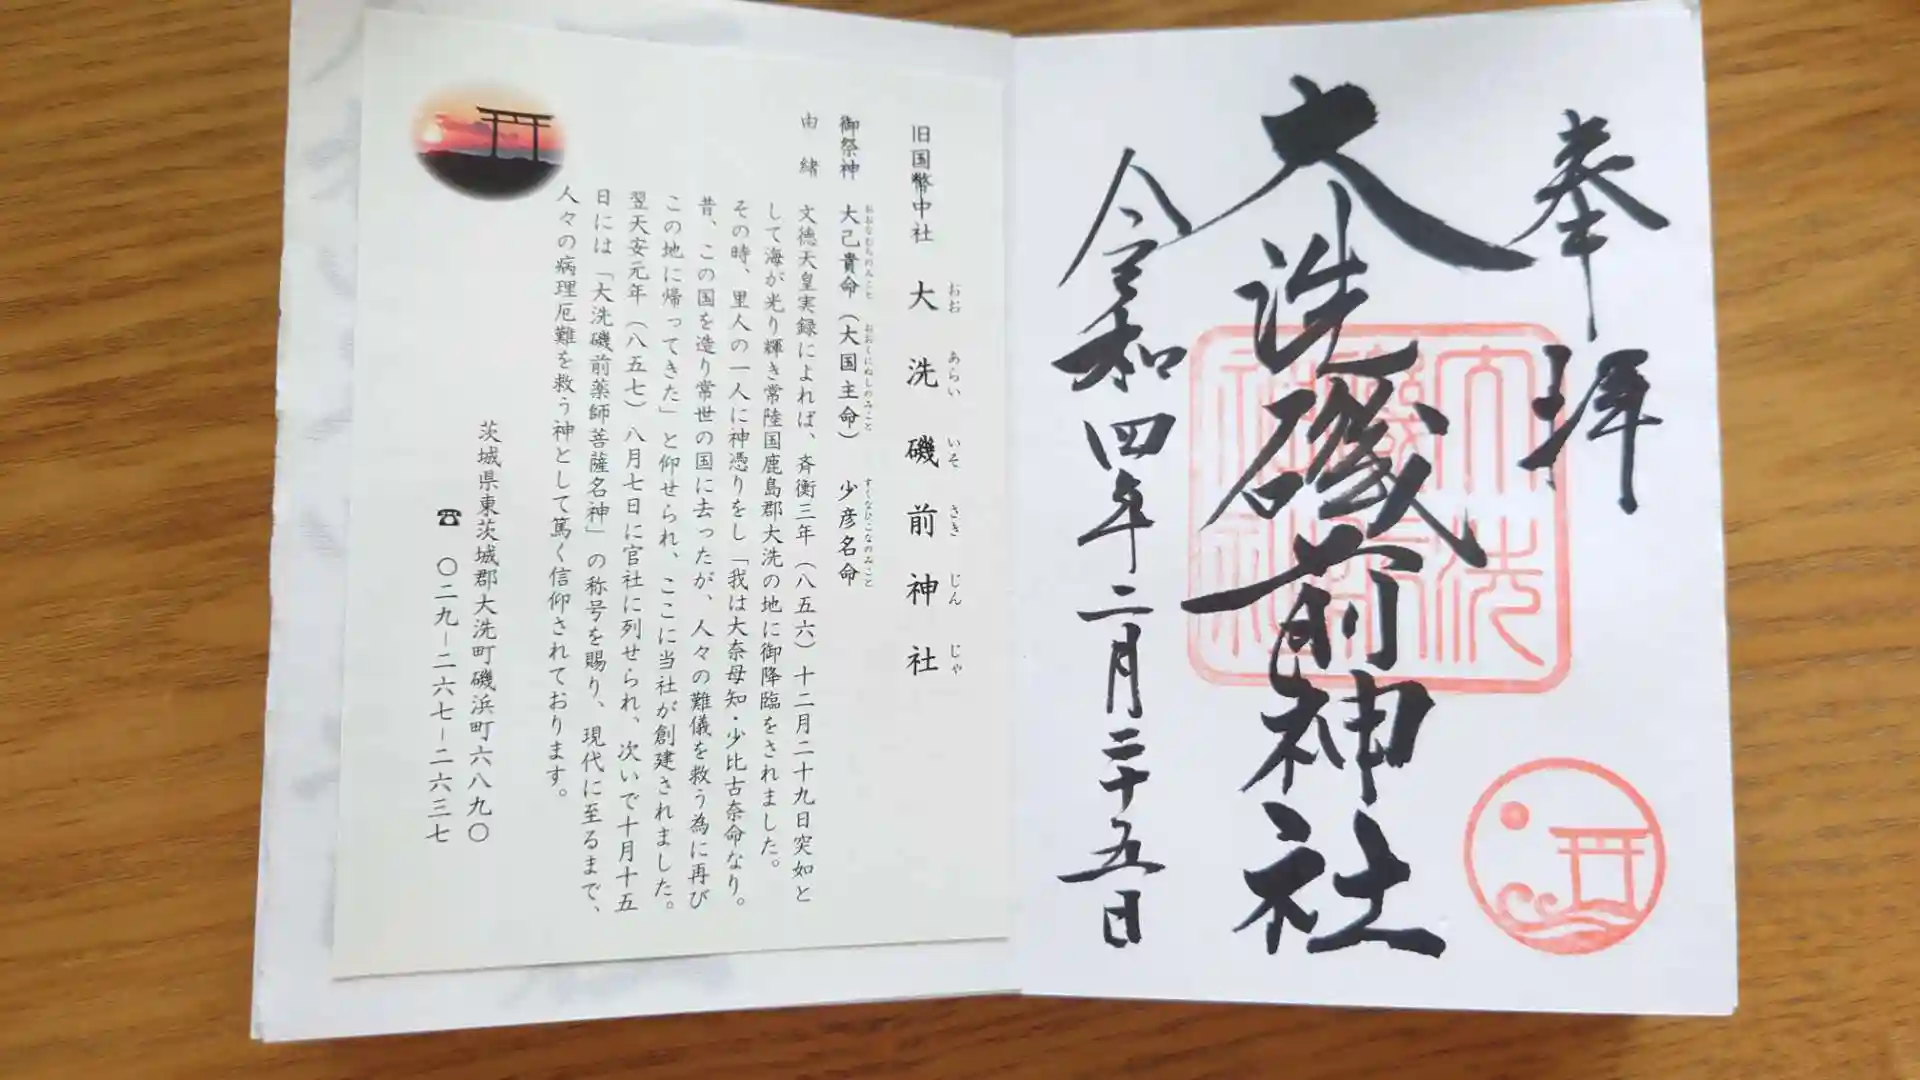 奉拝
大洗磯前神社
令和四年二月二十五日
大洗
磯前
神社
旧国幣中社 大洗磯前神社
おお あらい いそ さき じん じゃ
御祭神 大己貴命(大国主命) 少彦名命
おおなむちのみこと おおくにぬしのみこと すくなひこなのみこと
由緒 文徳天皇実録によれば、斉衡三年(八五六)十二月二十九日突如と
して海が光り輝き常陸国鹿島郡大洗の地に御降臨をされました。
その時、里人の一人に神憑りをし「我は大奈母知・少比古奈命なり。
昔、この国を造り常世の国に去ったが、人々の難儀を救う為に再び
この地に帰ってきた」と仰せられ、ここに当社が創建されました。
翌天安元年(八五七)八月七日に官社に列せられ、次いで十月十五
日には「大洗磯前薬師菩薩名神」の称号を賜り、現代に至るまで、
人々の病理厄難を救う神として篤く信仰されております。
茨城県東茨城郡大洗町磯浜町六八九〇
☎ 〇二九-二六七-二六三七